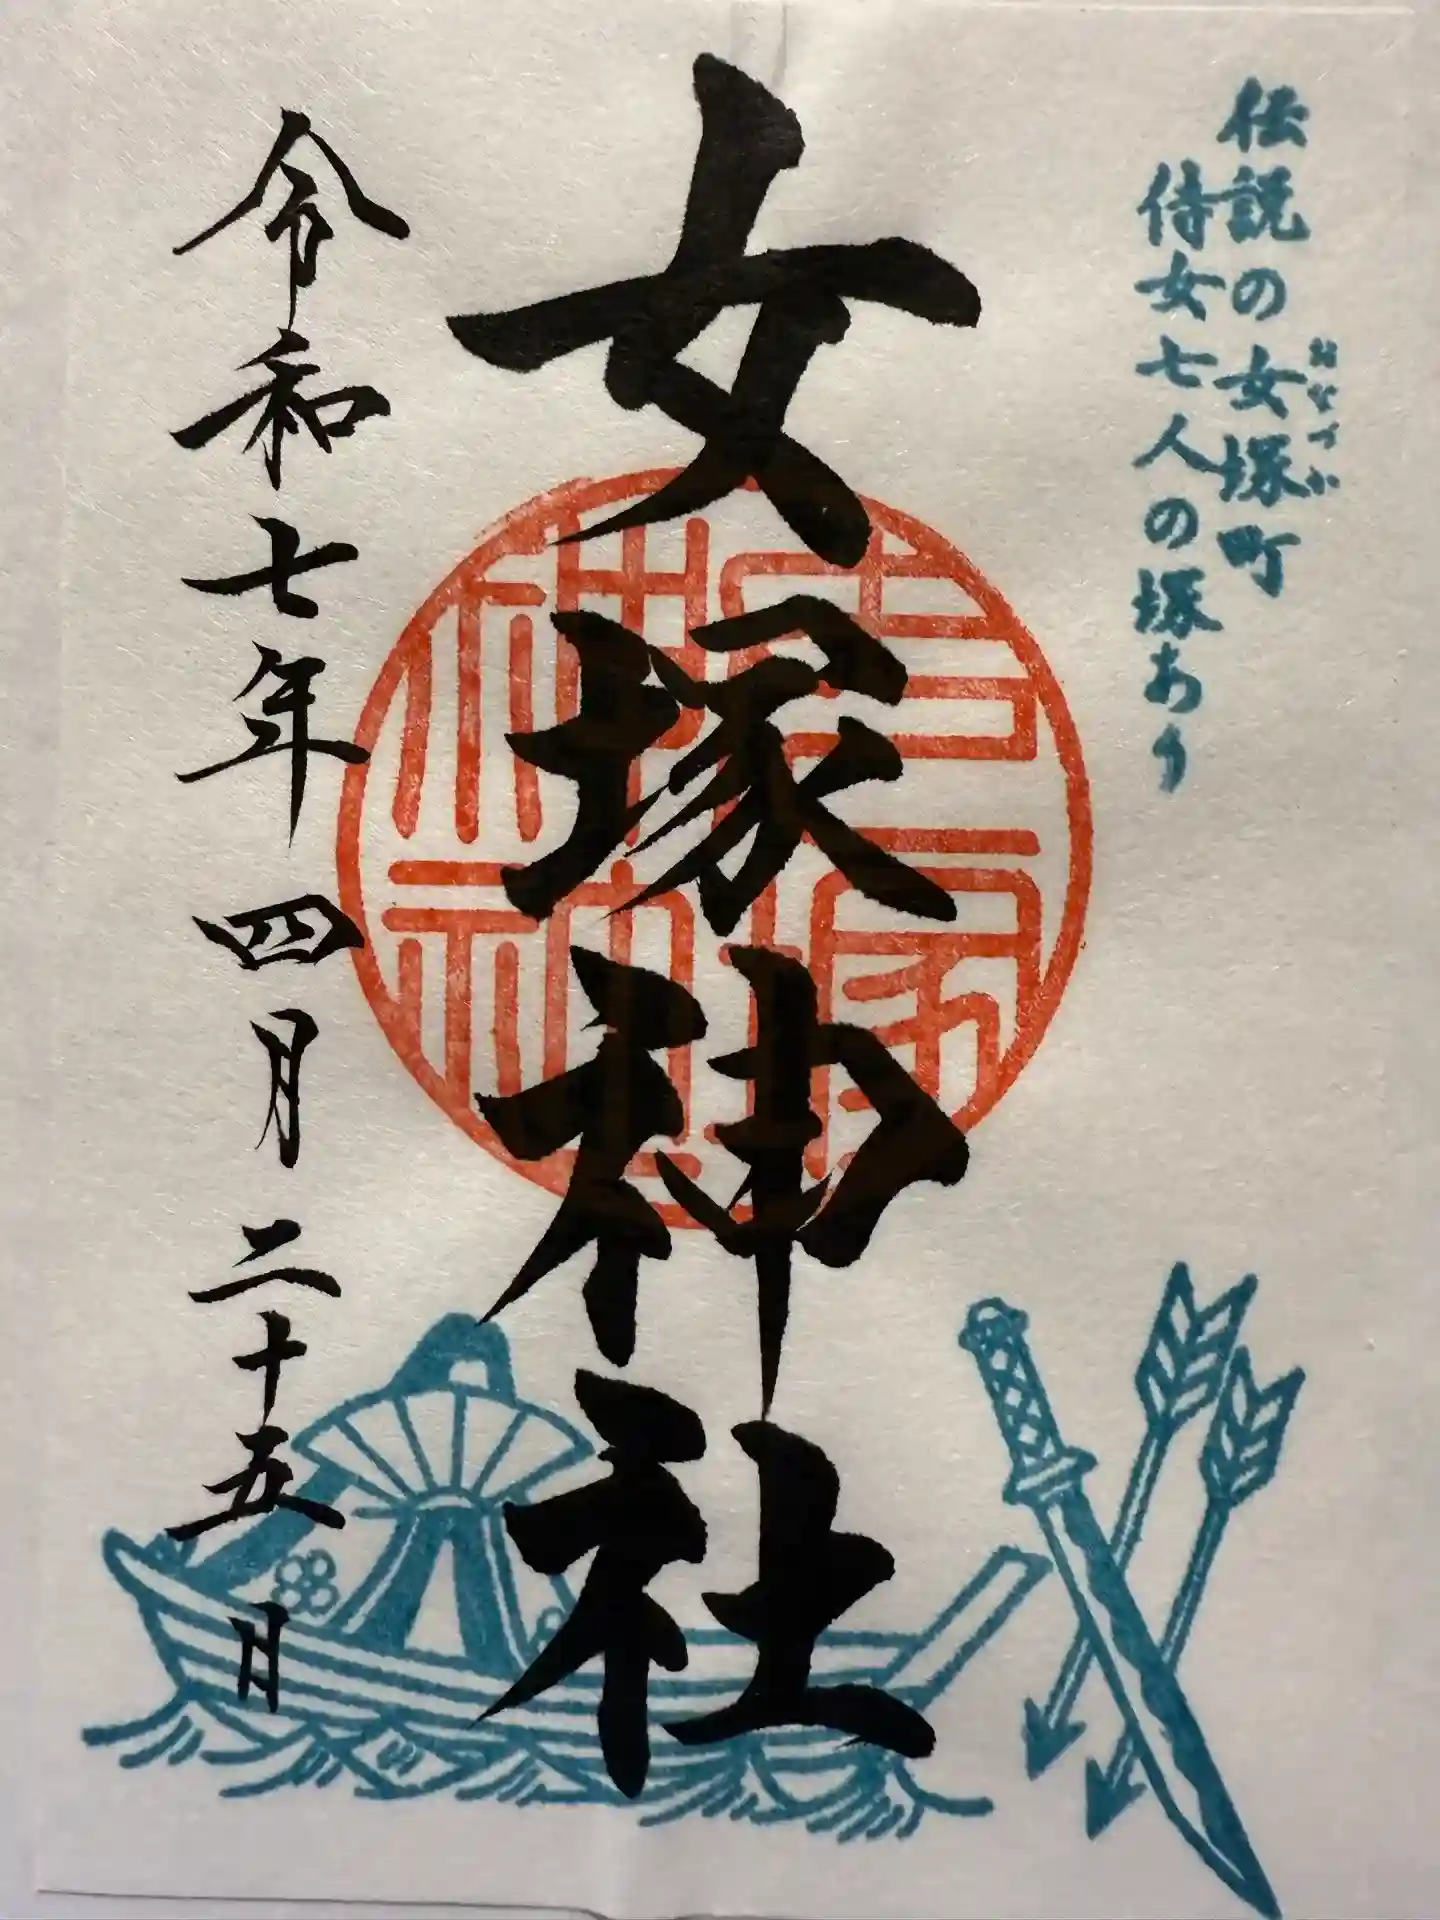 伝説の女塚町
おなづか
侍女七人の塚あり
女塚神社
令和七年四月二十五日